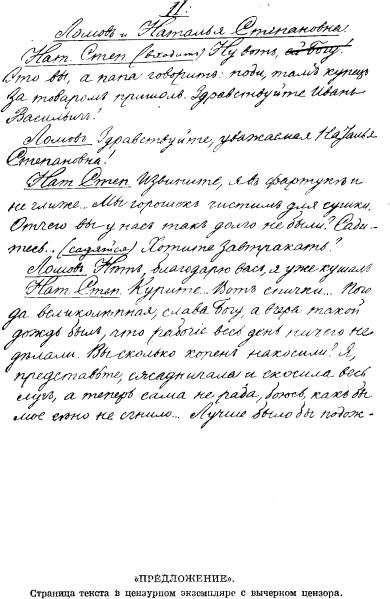 11.
Ломовъ и Наталья Степановна.
Нат. Степ (входитъ) Ну вотъ, ей Богу!
Это вы, а папа говоритъ: поди, тамъ купецъ
за товаромъ пришолъ. Здравствуйте Иванъ
Васильичъ!
Ломовъ Здравствуйте, уважаемая Наталья
Степановна!
Нат Степ Извините, я въ фартукѣ и
неглиже... Мы горошекъ чистимъ для сушки.
Отчего вы у насъ такъ долго не были? Сади-
тесь.. (садятся) Хотите завтракать?
Ломовъ Нѣтъ, благодарю васъ, я уже кушалъ
Нат Степ. Курите... Вотъ спички... Пого
да великолѣпная, слава Богу, а вчера такой
дождь былъ, что рабочіе весь день ничего не
дѣлали. Вы сколько копенъ накосили? Я,
представьте, сжадничала и скосила весь
лугъ, а теперь сама не рада, боюсь, какъ бы
мое сѣно не сгнило... Лучше было бы подож-
«ПРЕДЛОЖЕНИЕ».
Страница текста в цензурном экземпляре с вычерком цензора.